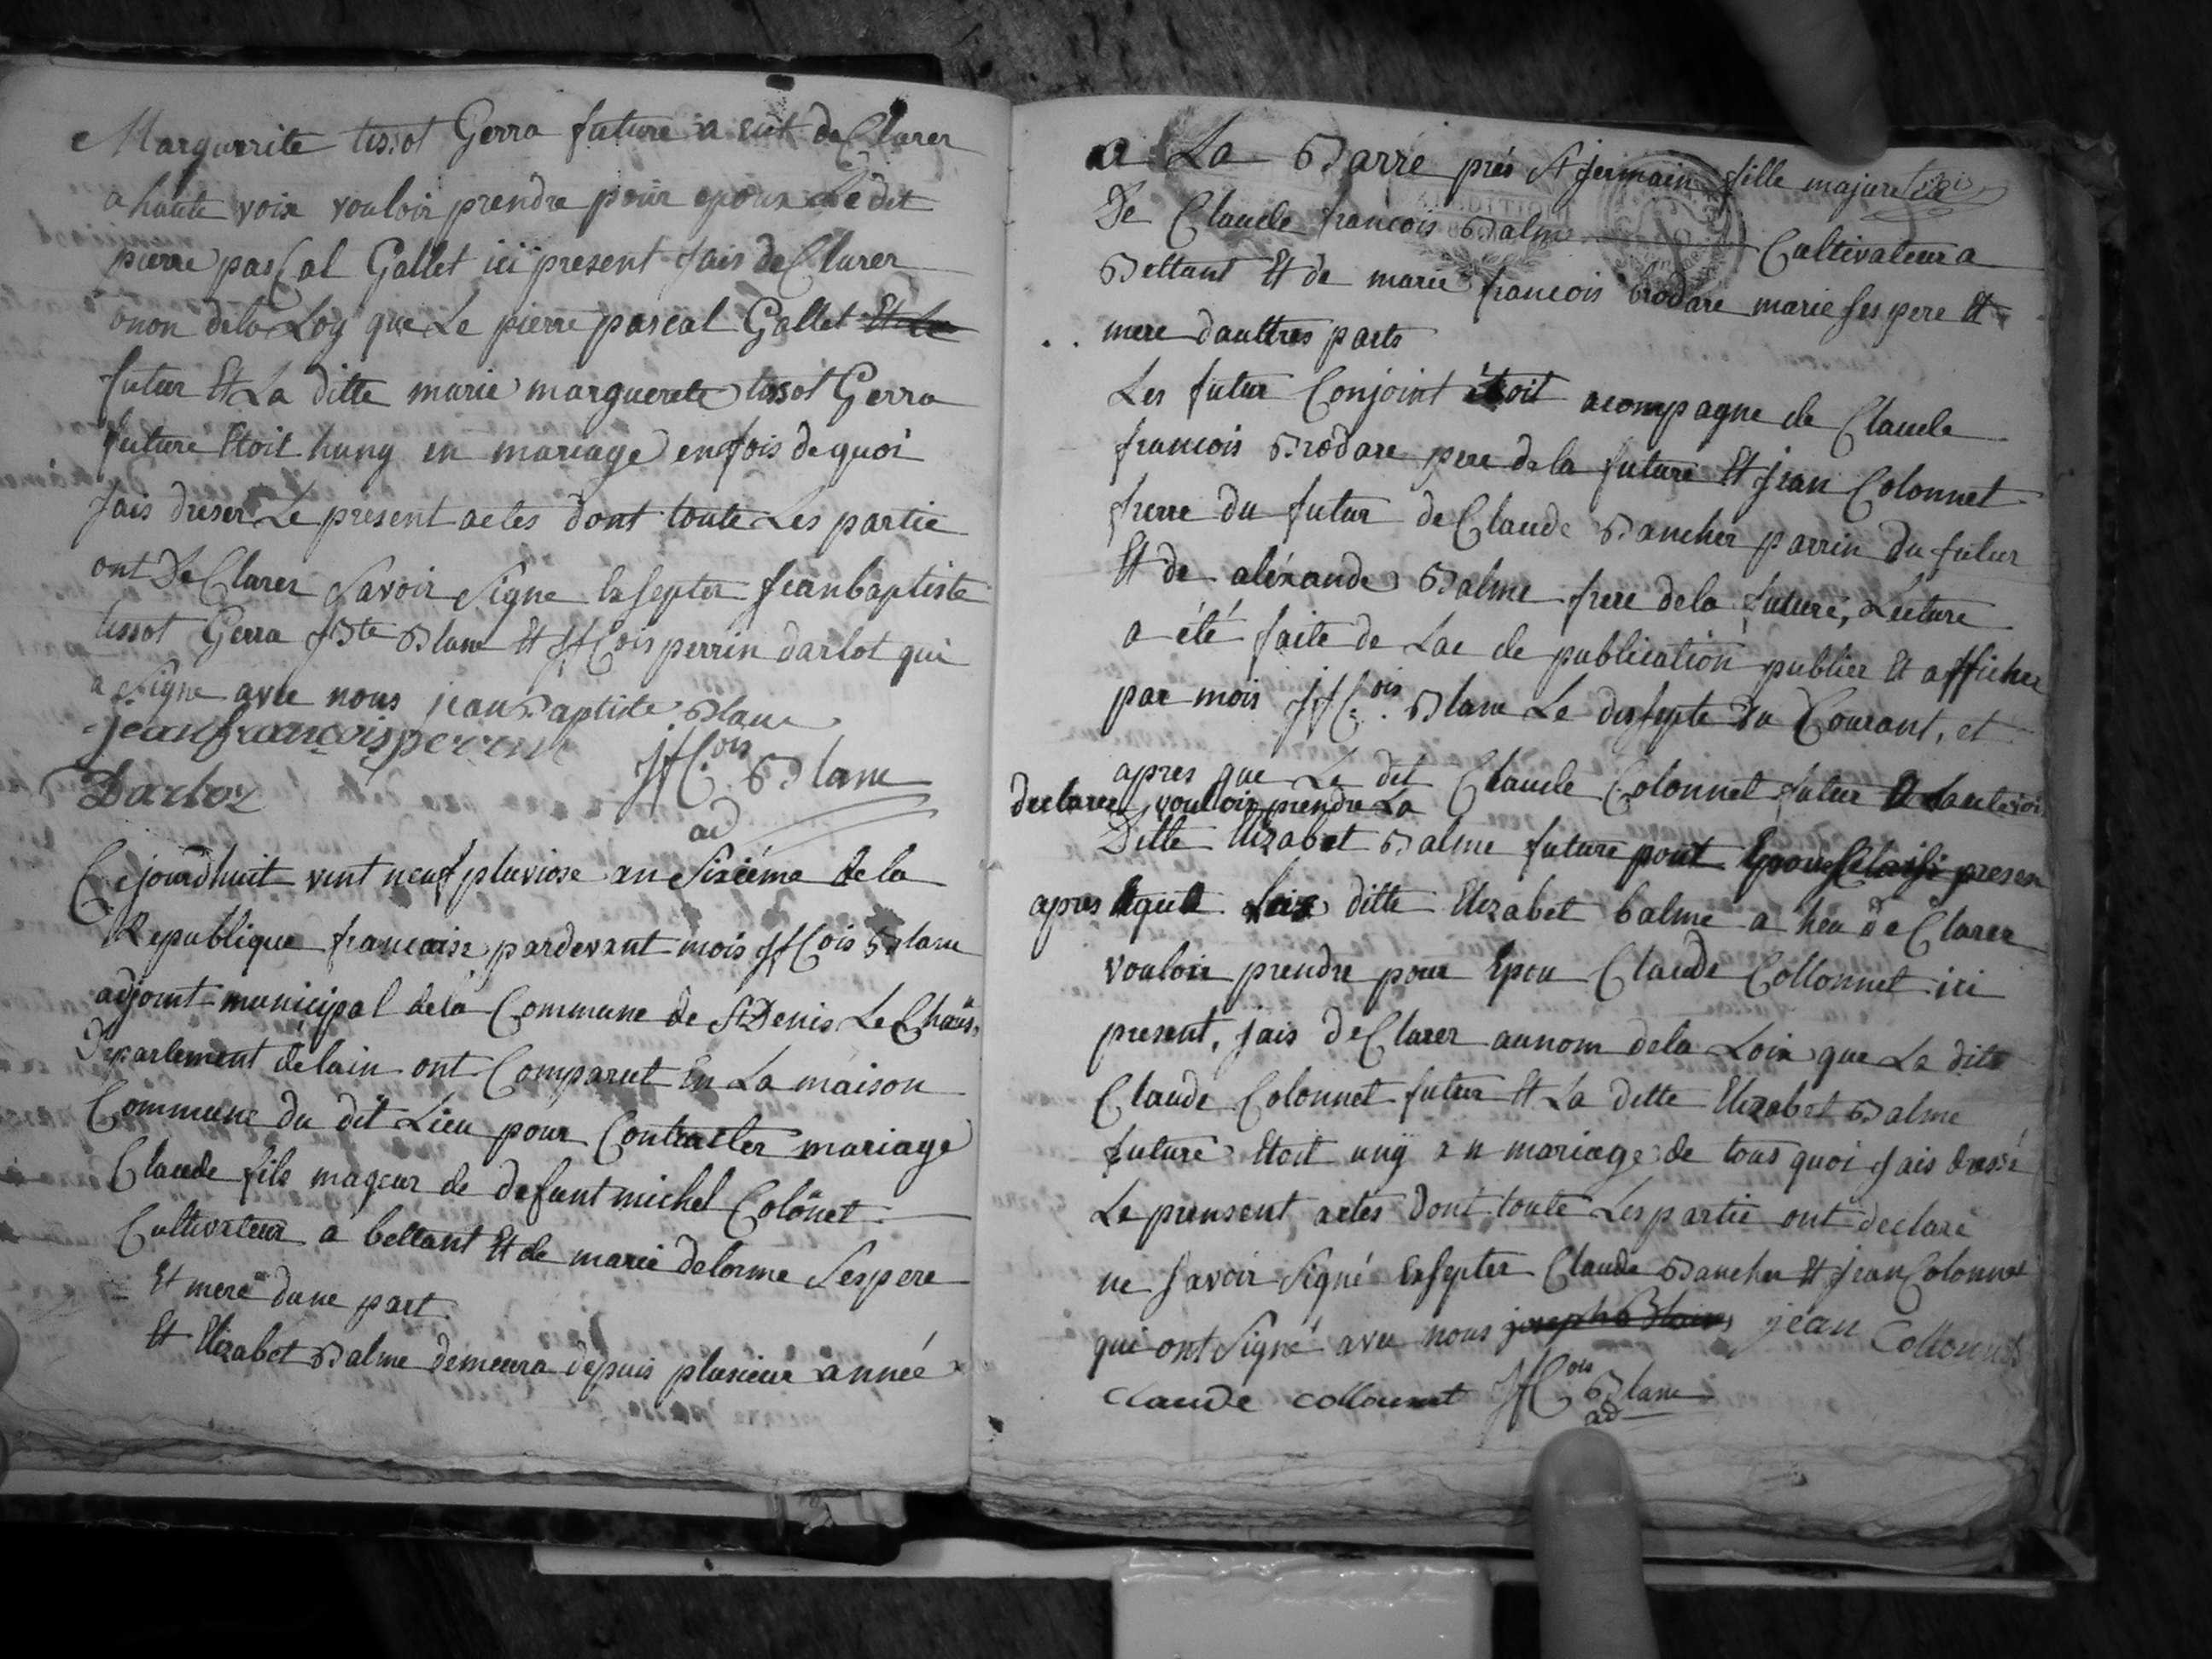 Marguerite tissot Gerra future a eut deClarer
a haute voix vouloir prendre pour epoux Le dit
pierre pasCal Gallet ici present jais deClarer
onon dela Loy que Le pierre pascal Gallet Et La
futur Et La ditte marie marguerete tissot Gerra
future Etoit huny en mariage en fois de quoi
jais dreser Le present actes dont toute Les partie
ont DeClarer Savoir Signe Exsepter jean baptiste
tissot Gerra jBte Blanc Et jfCois perrin darlot qui
a Signe avec nous jean Baptiste Blanc
jean françois perrin
Darloz jfC.ois Blanc
ad
Cejourdhuit vint neuf pluviose an Sixiéme de la
Republique francaise pardevant mois jfCois Blanc
adjoint municipal dela Commune de St Denis Le Chaus.
Departement delain ont Comparut En La maison
Commune du dit Lieu pour Contracter mariage
Claude fils majeur de defunt michel Colonet
Cultivateur a bettant Et de marie delorme Ses pere
Et mere dune part
Et Elizabet Balme demeura depuis plusieur année
a La Barre prés St jermain fille majure
De Claude francois Balme Cultivateur a
Bettant Et de marie francois brodare marie ses pere Et
mere daultres parts
Les futur Conjoint étoit acompagne de Claude
francois Brodare pere dela future Et jean Colonnet
frere du futur de Claude Bancher parrin du futur
Et de aléxandre Balme frere dela future, Lecture
a été faite de Lac de publication publier Et afficher
par mois jfC.ois Blanc Le dissepte du Courant, et
apres que Le dit Claude Colonnet futur a haute voix
declarer vouloir prendre La
Ditte Elizabet Balme future pour Epouse presen
apres que ditte Elizabet balme a heu deClarer
vouloir prendre pour Epou Claude Collonnet ici
present, jais deClarer aunom dela Loix que Le dit
Claude Colonnet futur Et La ditte Elizabet Balme
future Etoit uny en mariage de tous quoi jais dressé
Le prensent actes Dont toute Les partie ont declaré
ne savoir Signé Exsepter Claude Bancher Et jean Colonnet
qui ont Signé avec nous jean Collonnet
Claude collonnet jfC.ois Blanc
ad